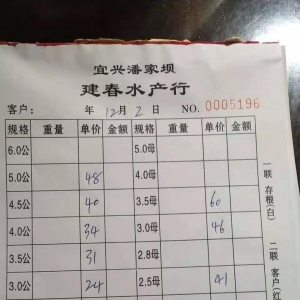 宜兴潘家坝
建春水产行
客户： 年 12月 2日 NO. 0005196
规格 重量 单价 金额 规格 重量 单价 金额
6.0公 5.0母
5.0公 48 4.0母
4.5公 40 3.5母 60
4.0公 34 3.0母 46
3.5公 31 2.8母
3.0公 24 2.5母 41
一联 存根(白)
二联 客户(红